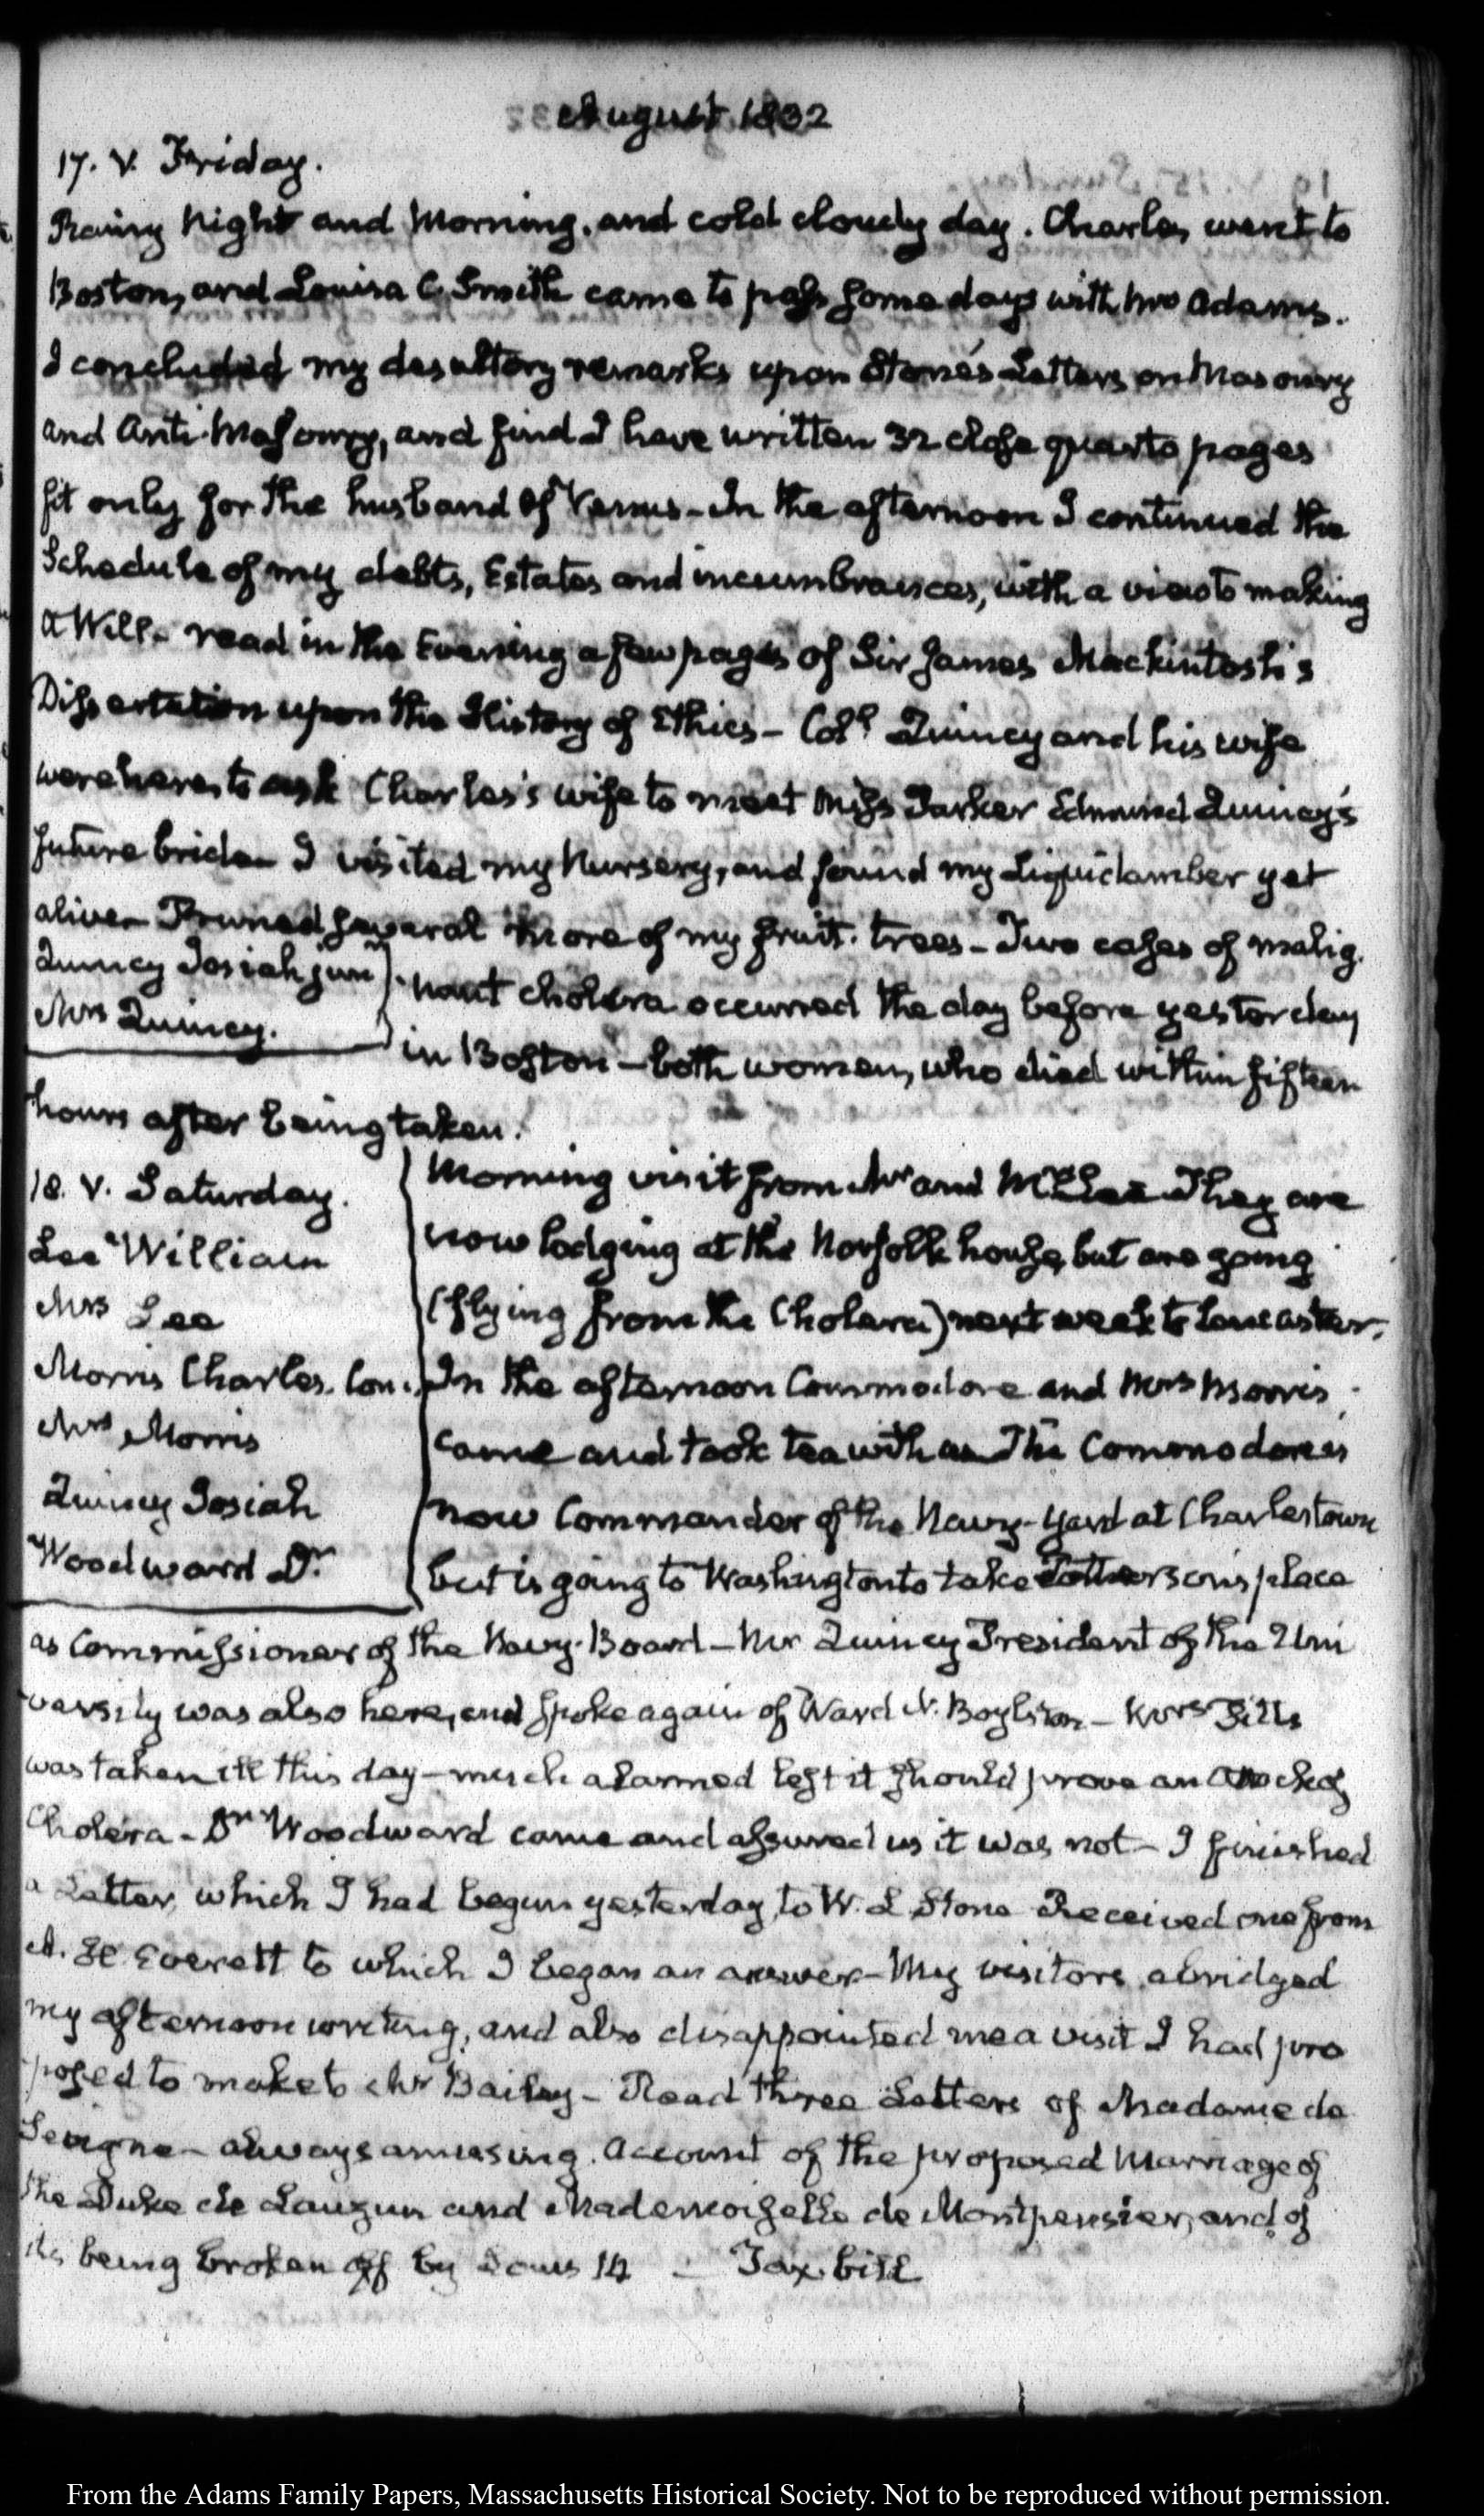 August 1832
17. V. Friday.
Rainy Night and Morning, and cold cloudy day. Charles went to
Boston, and Louisa C. Smith came to pass some days with Mrs Adams.
I concluded my desultory remarks upon Stone's Letters on Masonry
and Anti-Masonry, and find I have written 32 close quarto pages
fit only for the husband of Venus - In the afternoon I continued the
Schedule of my debts, Estates and incumbrances, with a view to making
a Will - read in the Evening a few pages of Sir James Mackintosh's
Dissertation upon the History of Ethics - Coll Quincy and his wife
were here, to ask Charles's wife to meet Miss Parker Edmund Quincy's
future bride - I visited my Nursery, and found my Liquidamber yet
alive - Pruned several more of my fruit-trees - Two cases of malig-
Quincy Josiah junr
Mrs Quincy.
nant cholera occurred the day before yesterday
in Boston - both women, who died within fifteen
hours after being taken.
18. V. Saturday.
Lee William
Mrs Lee
Morris Charles. Com.
Mrs Morris
Quincy Josiah
Woodward Dr
Morning visit from Mr and Mrs Lee They are
now lodging at the Norfolk house, but are going
(flying from the Cholera) next week to Lancaster.
In the afternoon Commodore and Mrs Morris
came and took tea with us The Commodore is
now Commander of the Navy-Yard at Charlestown
but is going to Washington to take Patterson's place
as Commissioner of the Navy-Board - Mr Quincy President of the Uni
versity was also here, and spoke again of Ward N. Boylston -
was taken ill this day - much alarmed lest it should prove an attack of
Cholera - Dr Woodward came and assured us it was not - I finished
a Letter, which I had begun yesterday, to W. L Stone Received one from
A. H. Everett to which I began an answer - My visitors abridged
my afternoon writing, and also disappointed me a visit I had pro
posed to make to Mr Bailey - Read three Letters of Madame de
Sevigne - always amusing. Account of the proposed Marriage of
the Duke de Lauzun and Mademoiselle de Montpensier, and of
its being broken off by Louis 14 - Tax-bill
From the Adams Family Papers, Massachusetts Historical Society. Not to be reproduced without permission.